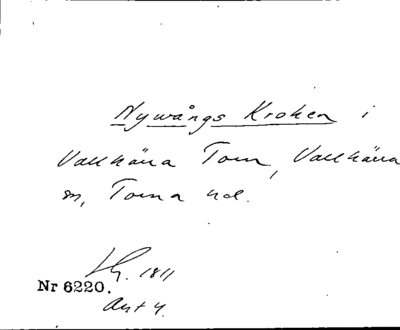 Nywångs Kroken i
Vallkärra Torn, Vallkärra
sn, Torna hd.
Lhg. 1811
Nr 6220.
Akt 4.